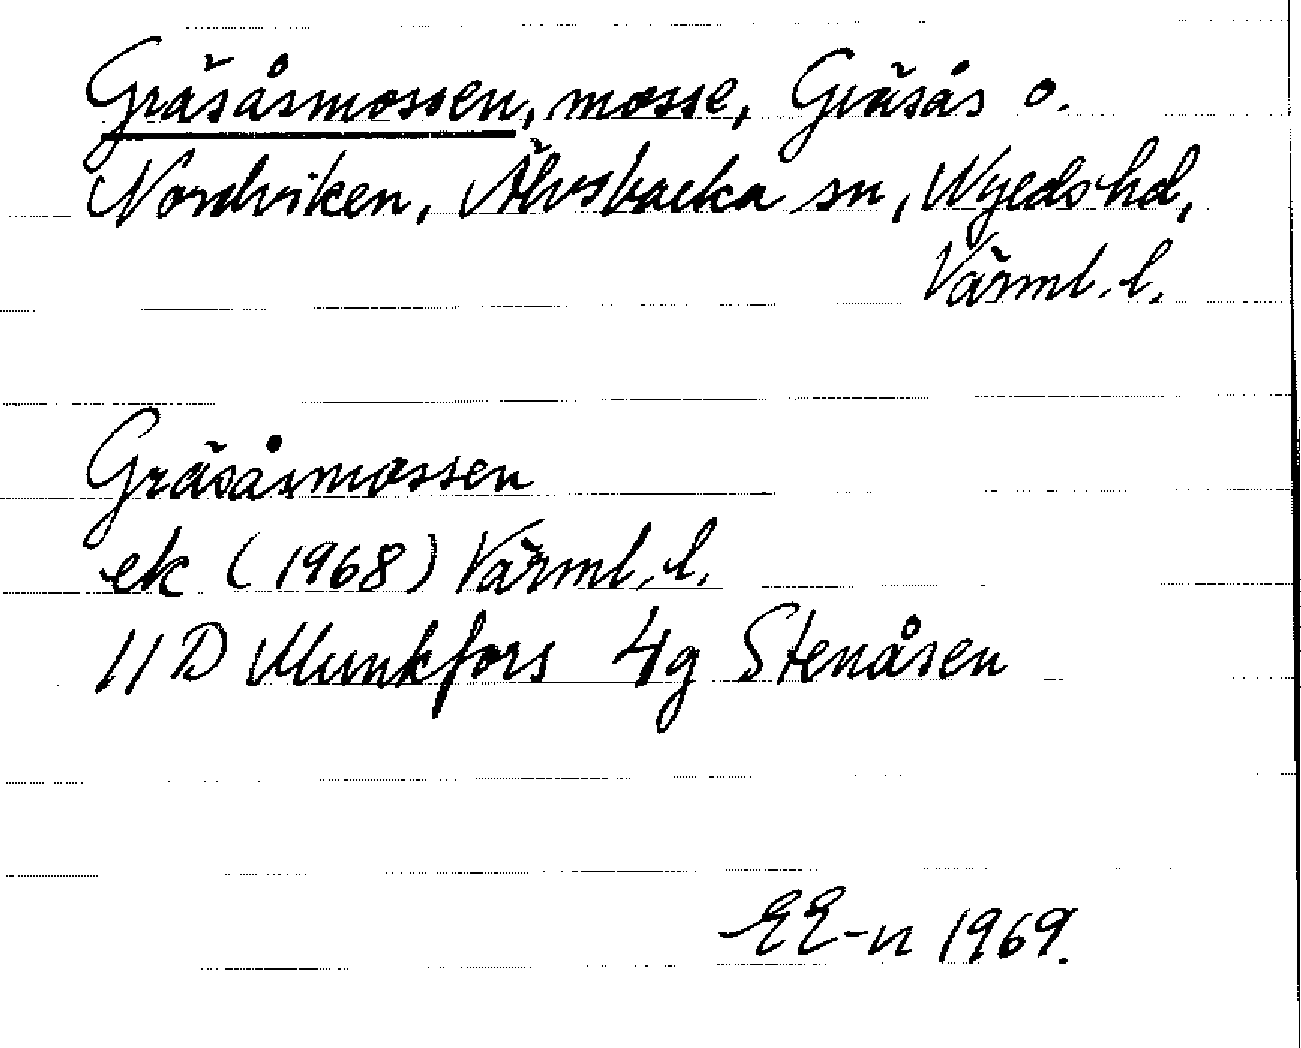 Gräsåsmossen, mosse, Gräsås o.
Nordviken, Älvsbacka sn, Nyeds hd,
Värml. l.
Gräsåsmossen
ek (1968) Värml. l.
11D Munkfors 4g Stenåsen
EE-n 1969.